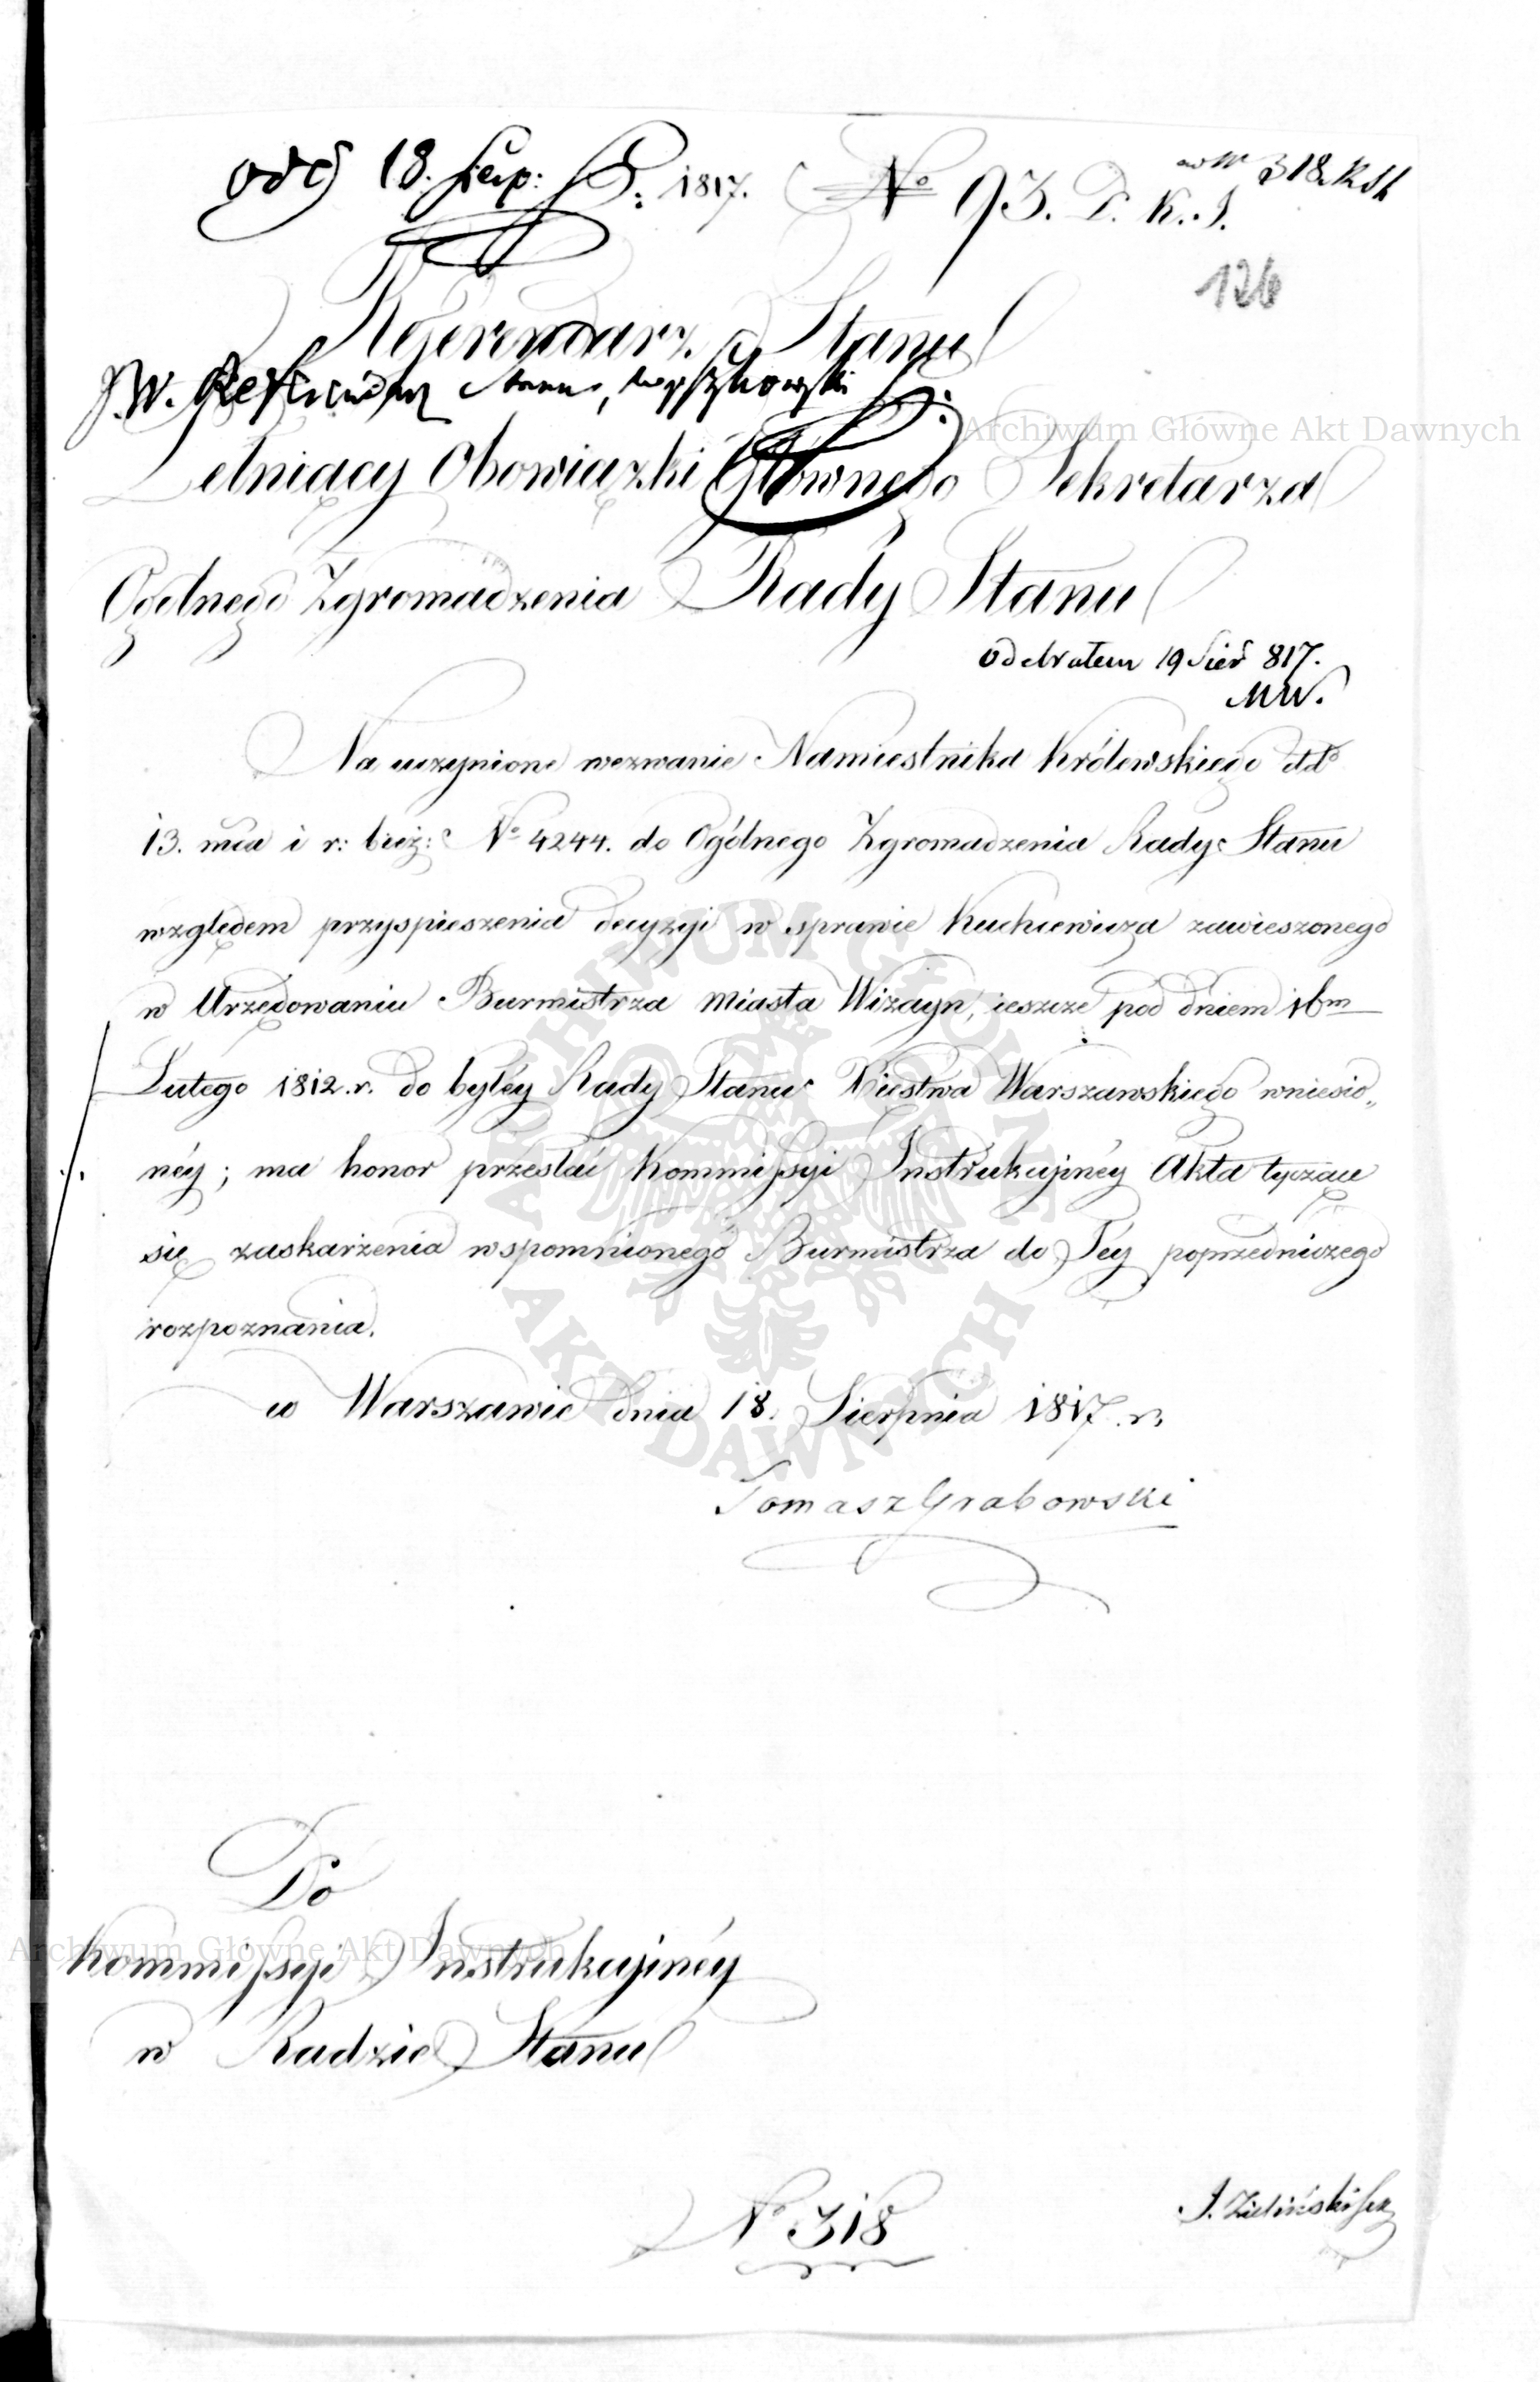 odd 18. Sierp: 1817. No 93. D. K. I. 318 RSt
126
Referendarz Stanu
J.W. Referendarz Stanu, Wyszkowski
Pełniący Obowiązki Głównego Sekretarza
Ogólnego Zgromadzenia Rady Stanu
Odebrałem 19 Sier 817.
MW.
Na uczynione wezwanie Namiestnika Królewskiego dd°
13. mca i r: bież: No 4244. do Ogólnego Zgromadzenia Rady Stanu
względem przyspieszenia decyzyi w sprawie Kuchcewicza zawieszonego
w Urzędowaniu Burmistrza Miasta Wizayn, ieszcze pod dniem 16m
Lutego 1812. r. do byłéy Rady Stanu Xięstwa Warszawskiego wniesio„
néy; ma honor przesłać Kommissyi Instrukcyinéy Akta tyczące
się zaskarżenia wspomnionego Burmistrza do Jéy poprzedniczego
rozpoznania.
w Warszawie dnia 18. Sierpnia 1817. r.
Tomasz Grabowski
Do
Kommissyi Instrukcyinéy
w Radzie Stanu
No 318
J. Zieliński
Archiwum Główne Akt Dawnych
Archiwum Główne Akt Dawnych
ARCHIWUM GŁÓWNE
AKT DAWNYCH